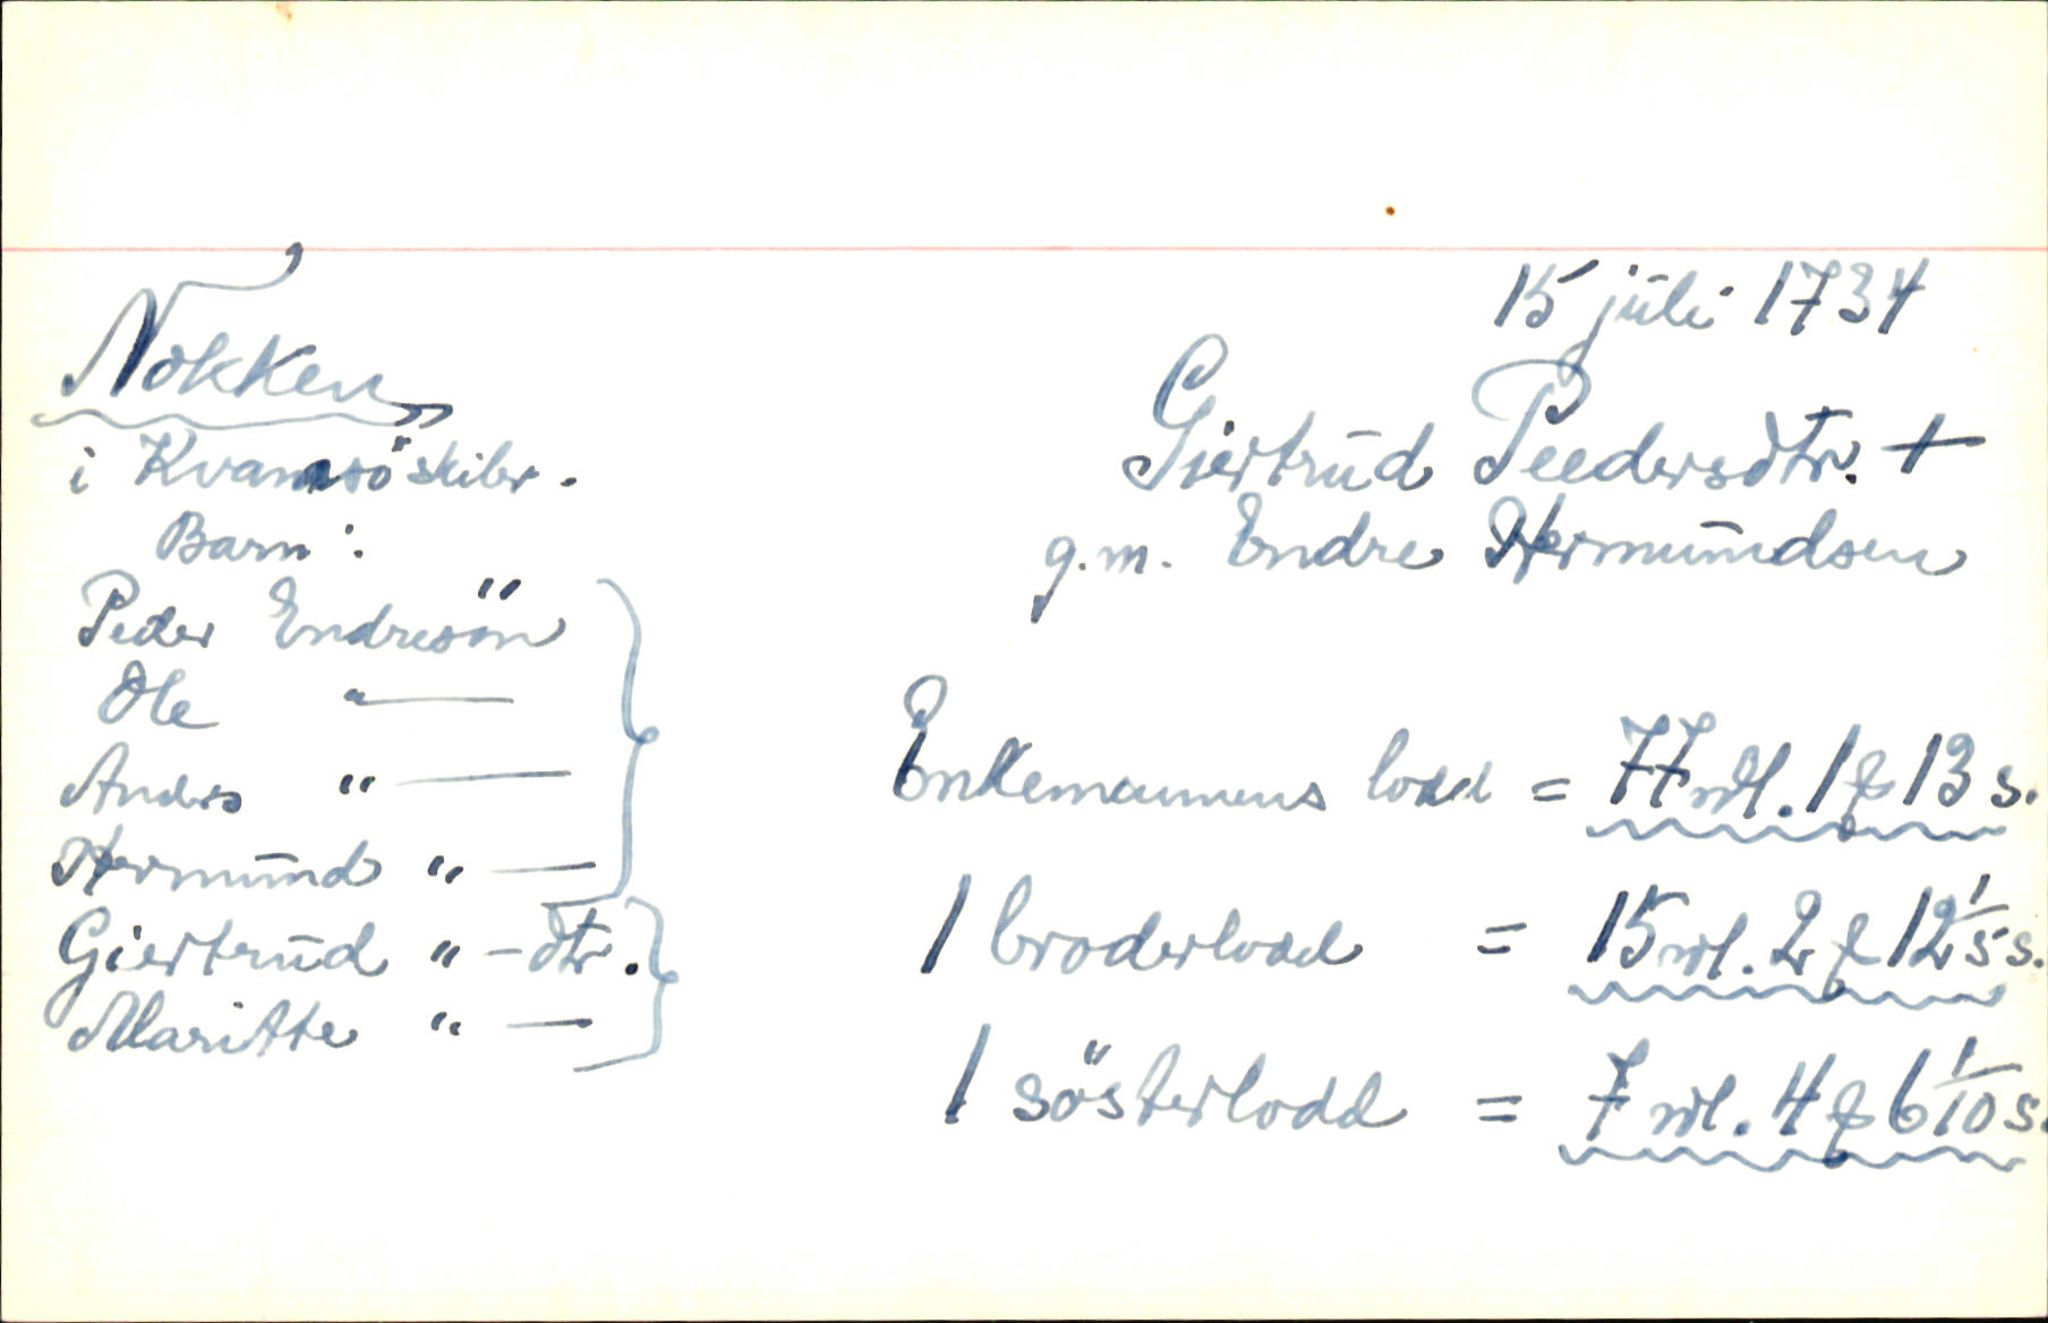 15 juli 1734
Nokken
i Kvamsö skibr.
Barn:
Peder Endresön
Ole "—
Anders "—
Hermund "—
Giertrud "—dtr.
Maritte "—
Giertrud Peedersdtr. +
g.m. Endre Hermundsen
Enkemannens lodd = 77 rdl. 1 ƒ 13 s.
1 broderlodd = 15 rdl. 2 ƒ 12 1/5 s.
1 sösterlodd = 7 rdl. 4 ƒ 6 1/10 s.